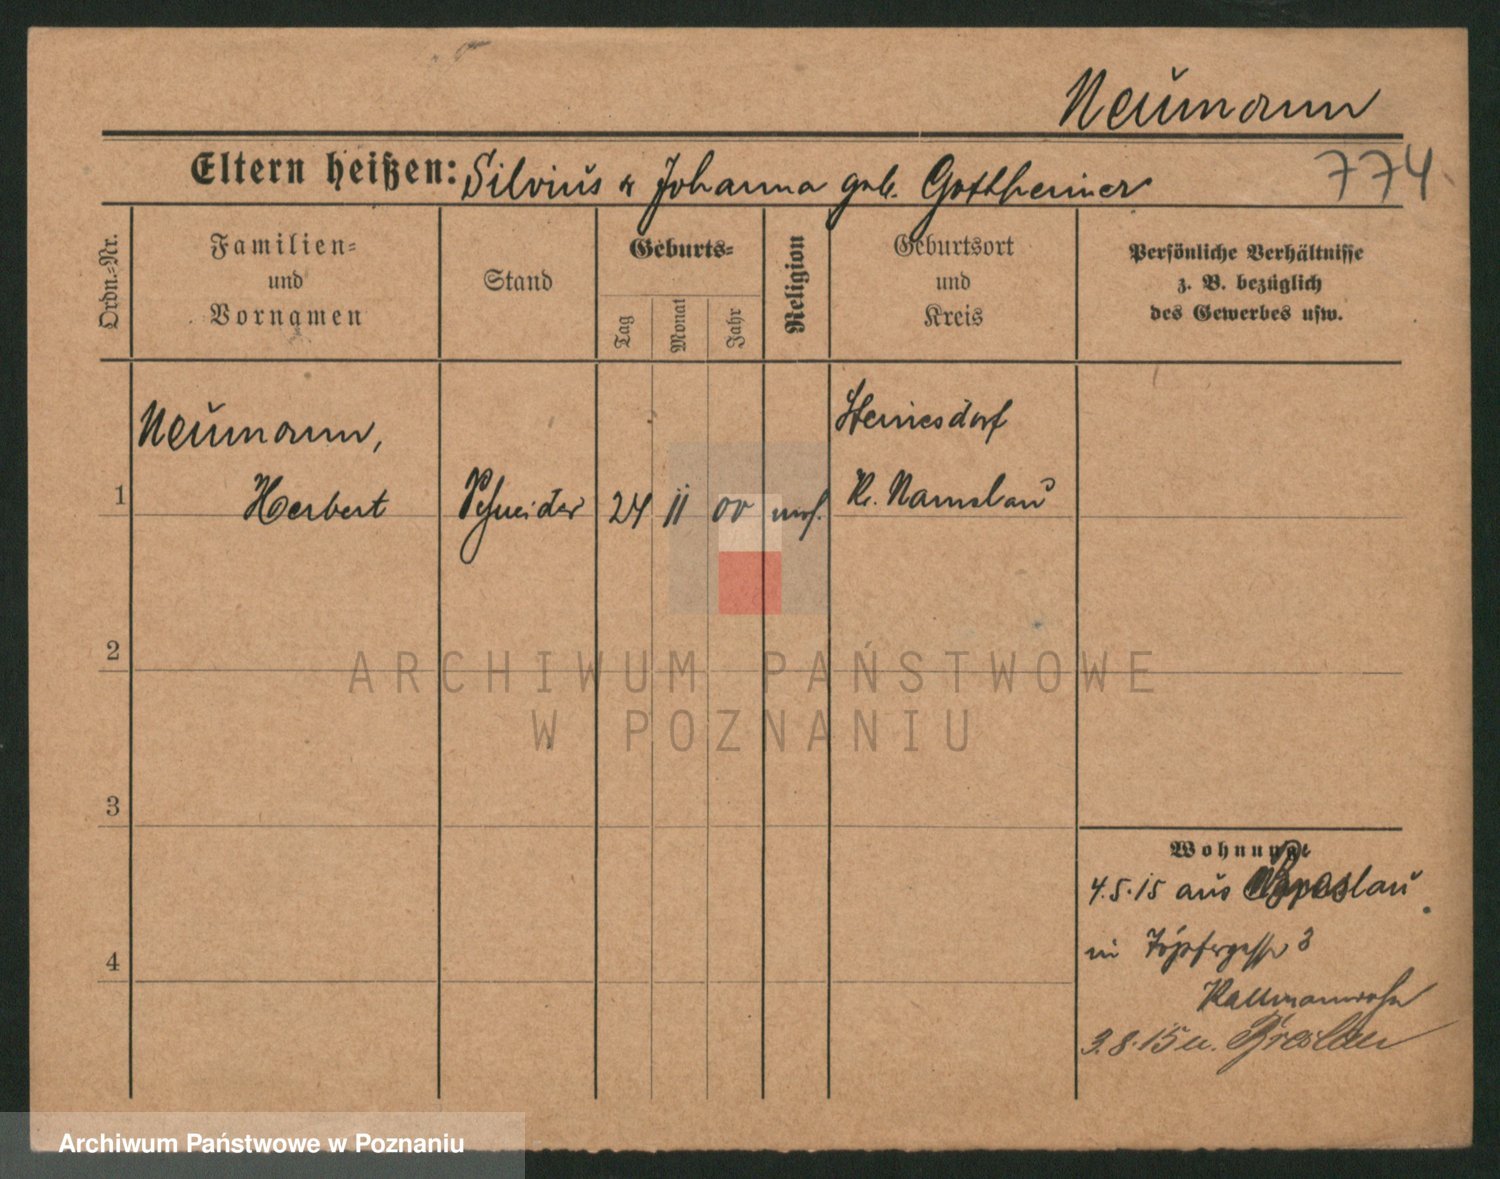 Neumann
Eltern heißen: Silvius & Johanna geb. Gottheiner
774
Ordn.-Nr.
Familien-
und
Vornamen
Stand
Geburts-
Tag
Monat
Jahr
Religion
Geburtsort
und
Kreis
Persönliche Verhältnisse
z. B. bezüglich
des Gewerbes usw.
1
Neumann,
Herbert
Schneider
24
11
00
mos.
Steinersdorf
Kr. Namslau
2
3
4
Wohnung
4.5.15 aus Breslau
in Töpfergasse 3
3.8.15 n. Breslau
ARCHIWUM PAŃSTWOWE
W POZNANIU
Archiwum Państwowe w Poznaniu